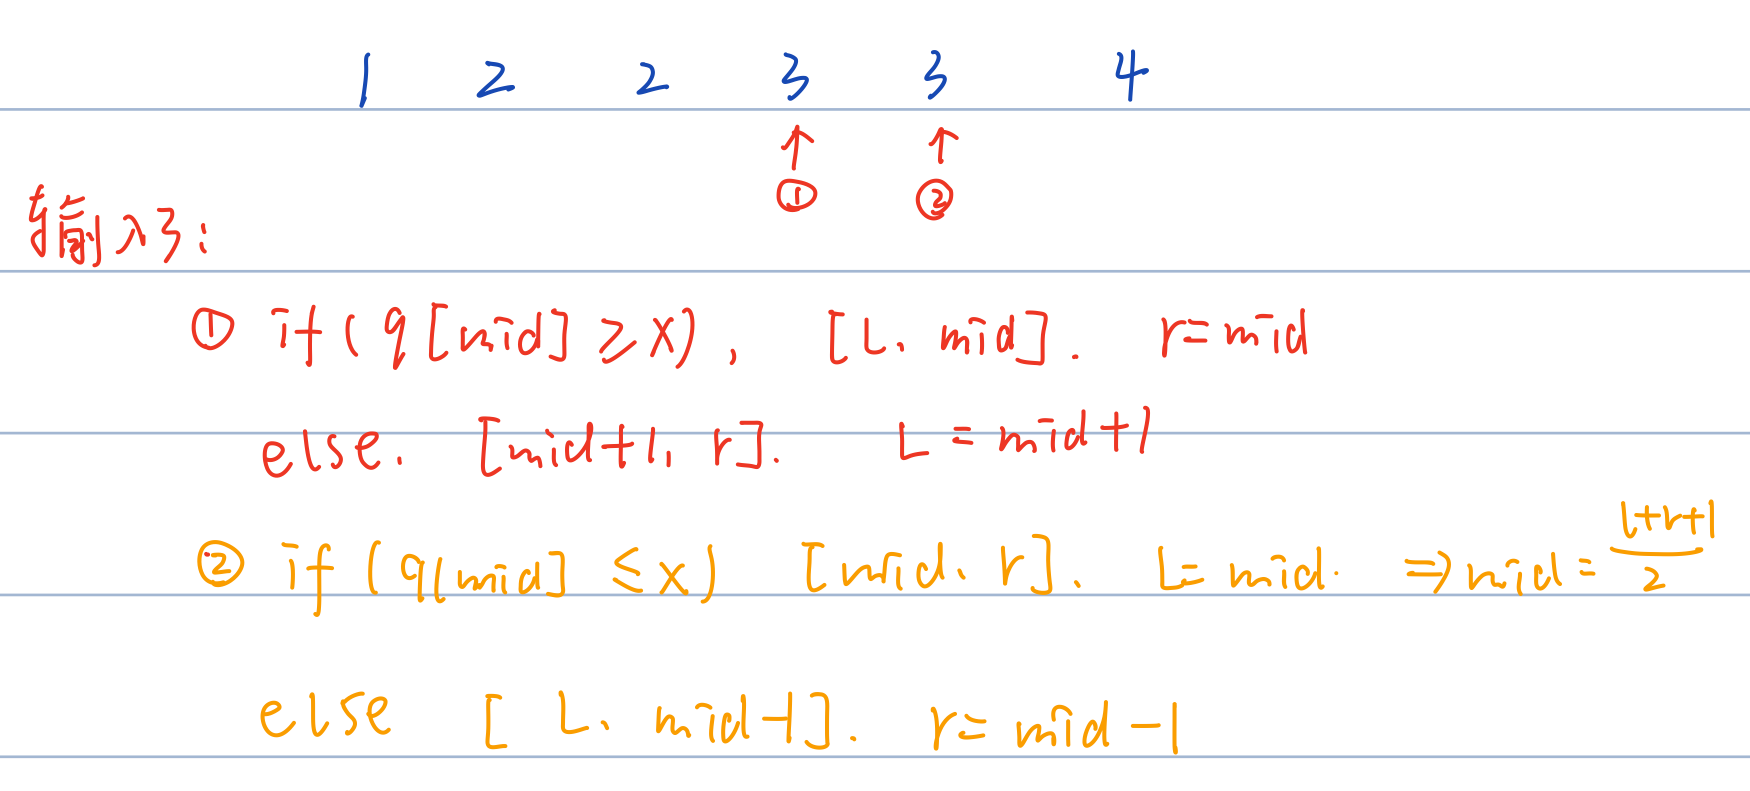 1 2 2 3 3 4
↑ ↑
① ②
输入3:
① if(q[mid]≥x), [L, mid]. r=mid
else. [mid+1, r]. L=mid+1
② if(q[mid]≤x) [mid, r]. L=mid. ⇒mid=(l+r+1)/2
else [L, mid-1]. r=mid-1